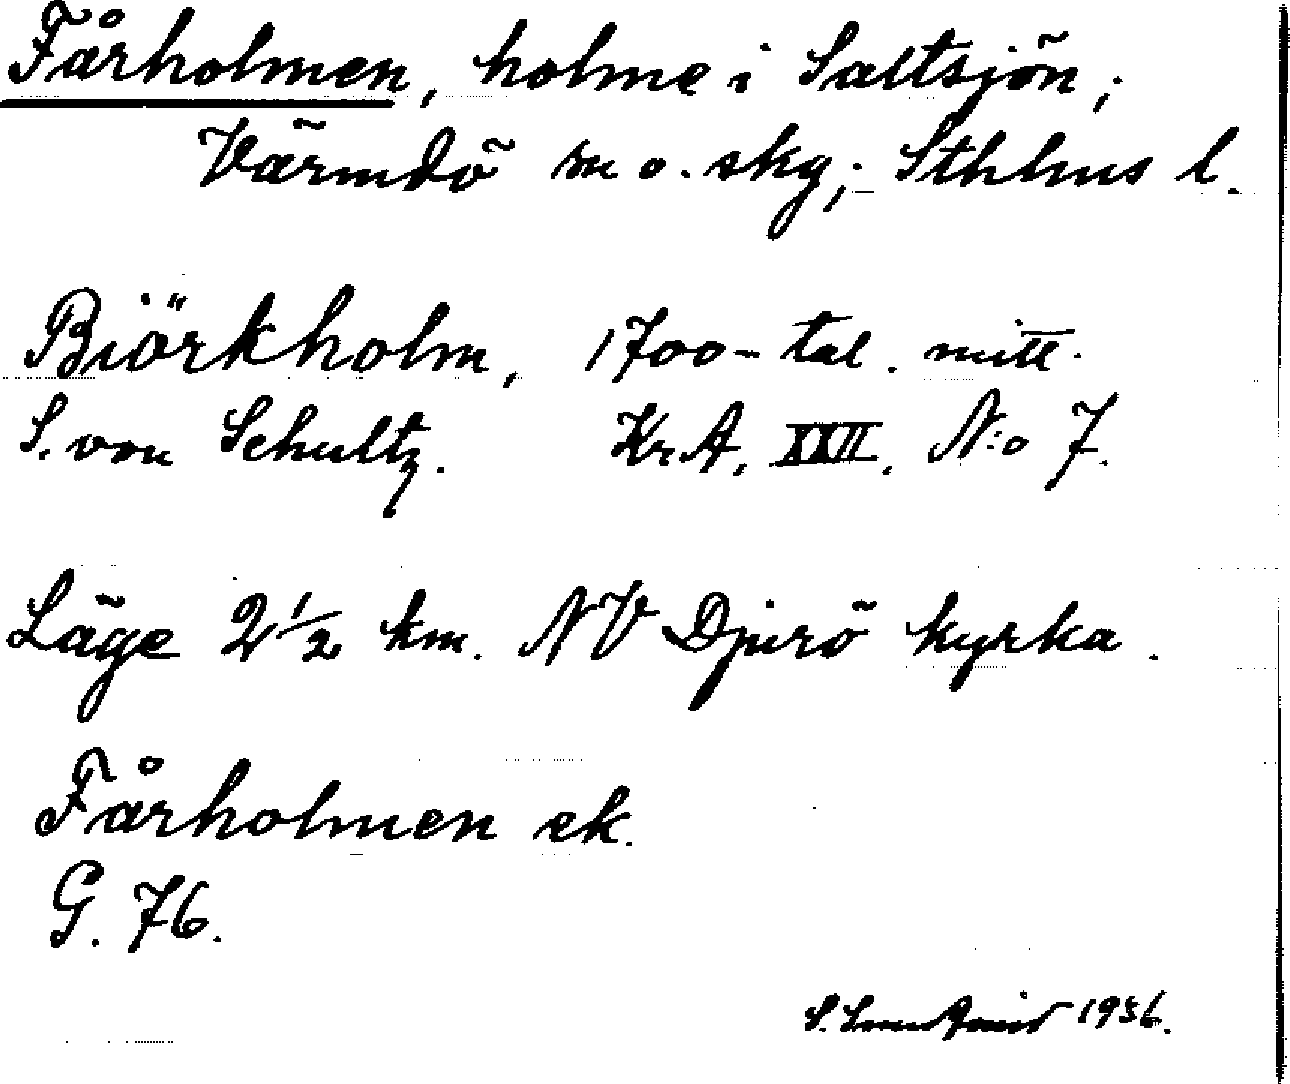 Fårholmen, holme i Saltsjön,
Värmdö sn o. skg; Sthlms l.
Biörkholm, 1700-tal. mitt.
S. von Schultz. Kr.A, XXII, N:o 7.
Läge 2 1/2 km. NV Djurö kyrka.
Fårholmen ek.
G. 76.
S. 1936.